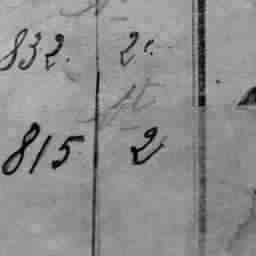 832. 2.
815 2